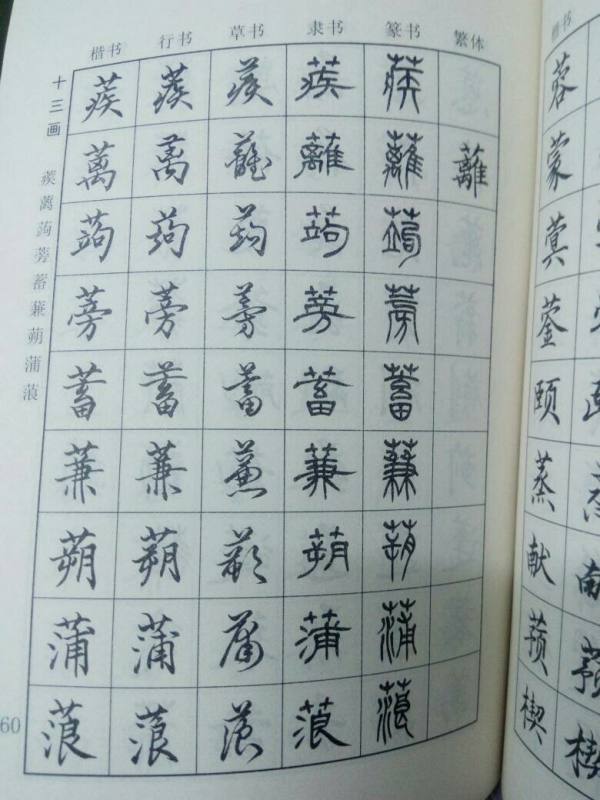 楷书 行书 草书 隶书 篆书 繁体
十三画 蒺蓠蒟蒡蓄蒹蒴蒲蒗
蒺 蒺 蒺 蒺 蒺
蓠 蓠 蘺 蘺 蘺 蘺
蒟 蒟 蒟 蒟 蒟
蒡 蒡 蒡 蒡 蒡
蓄 蓄 蓄 蓄 蓄
蒹 蒹 蒹 蒹 蒹
蒴 蒴 蒴 蒴 蒴
蒲 蒲 蒲 蒲 蒲
蒗 蒗 蒗 蒗 蒗
60
楷书
蓉
蒙
蓂
蓥
颐
蒸
献
蓣
楔